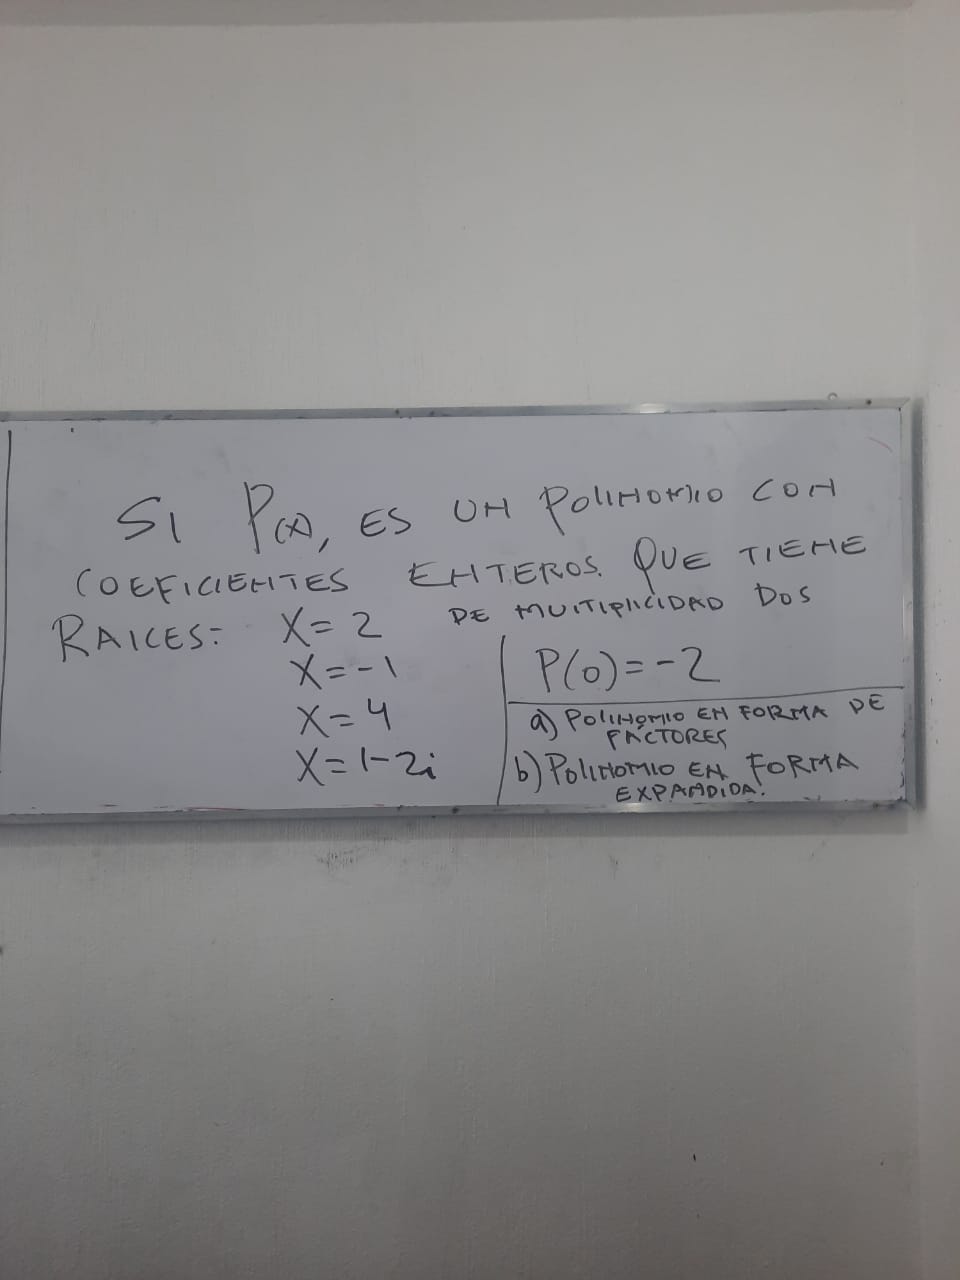 SI P(x), ES UN POLINOMIO CON
COEFICIENTES ENTEROS. QUE TIENE
RAICES: X=2 DE MULTIPLICIDAD DOS
X=-1
X=4
X=1-2i
P(0)=-2
a) POLINOMIO EN FORMA DE
FACTORES
b) POLINOMIO EN FORMA
EXPANDIDA.